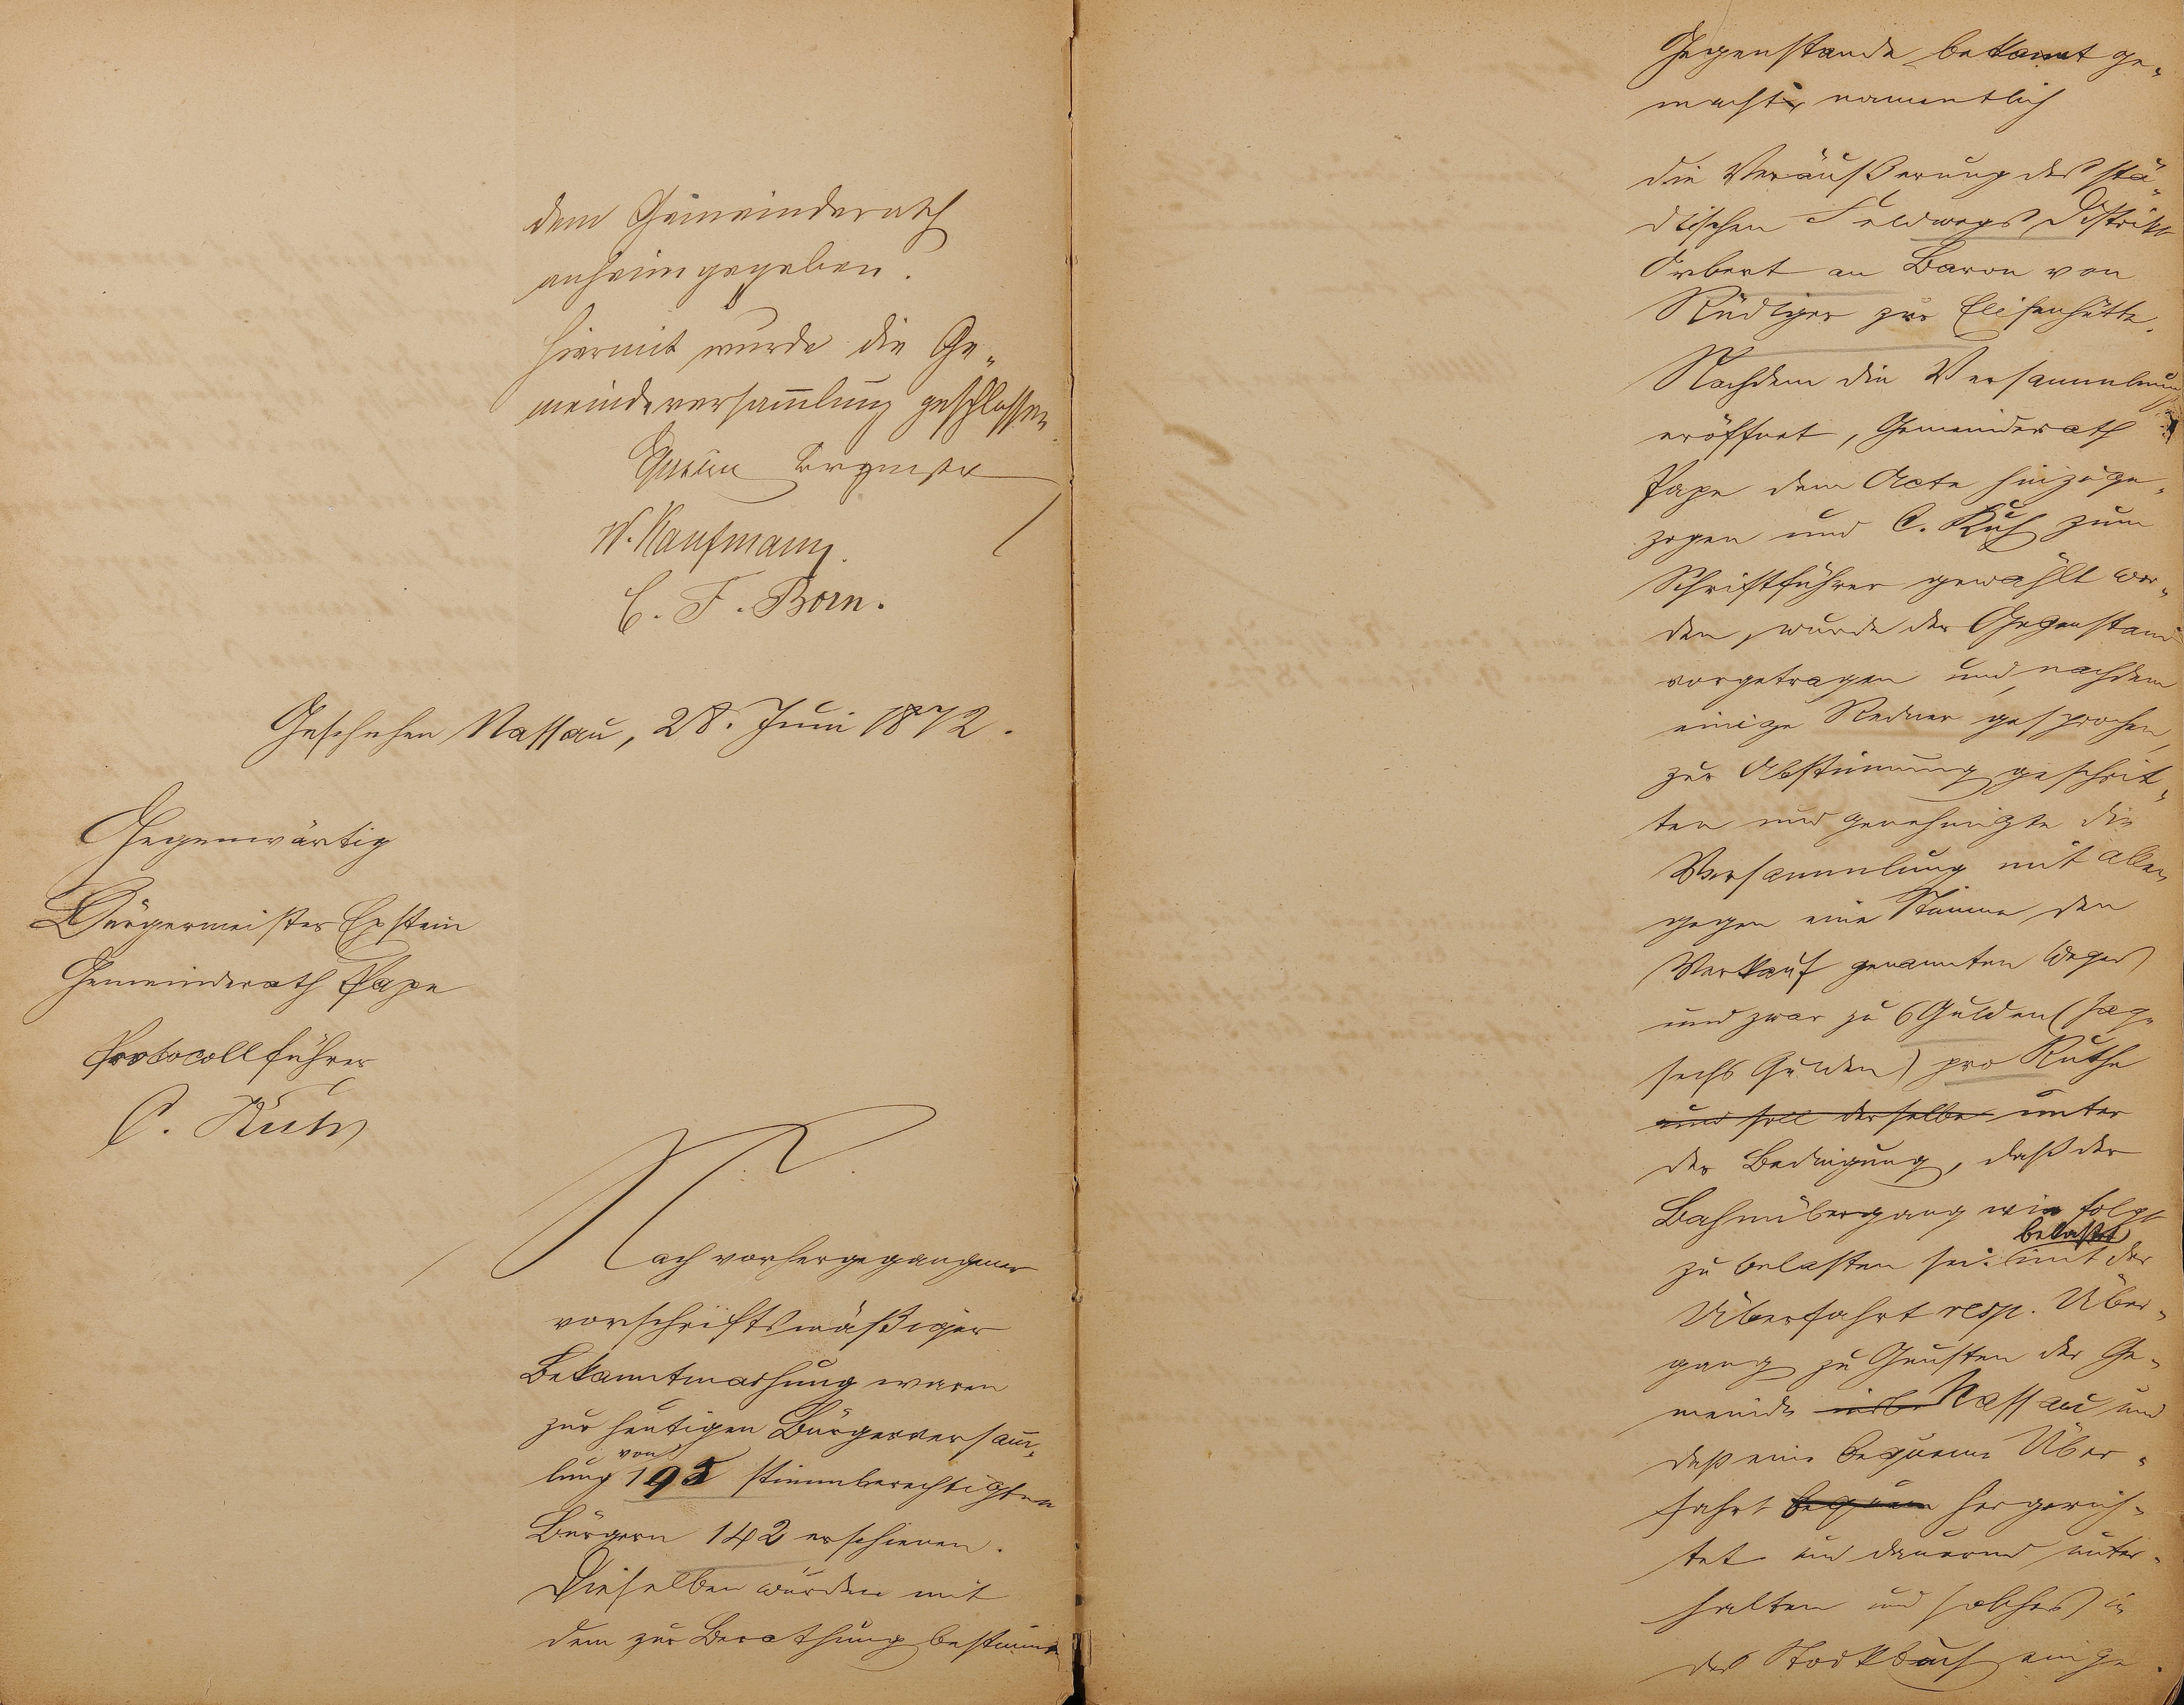 dem Gemeinderath
anheimgegeben.
Hiermit wurde die Ge„
meindeversam̅lung geschlossen
W. Kaufmann.
C. F. Born.
Geschehen Nassau, 28. Juni 1872.
Gegenwärtig
Bürgermeister Epstein
Gemeinderath Pape
Protocollführer
C. Kuh
Nach vorhergegangener
vorschriftsmäßiger
Bekanntmachung waren
zur heutigen Bürgerversam̅„
von
lung 195 stimmberechtigten
Bürgern 142 erschienen.
Dieselben wurden mit
dem zur Berathung bestimmten
Gegenstande bekannt ge„
macht, namentlich
die Veräußerung des stä„
dtischen Feldwegs Distrikt
Orbert an Baron von
Rüdiger zur Elisenhütte.
Nachdem die Versammlung
eröffnet, Gemeinderath
Pape dem Acte hinzuge„
zogen und C. Kuh zum
Schriftführer gewählt wor„
den, wurde der Gegenstand
vorgetragen und, nachdem
einige Redner gesprochen,
zur Abstimmung geschrit„
ten und genehmigte die
Versammlung mit allen
gegen eine Stimme den
Verkauf genannten Weges
und zwar zu 6 Gulden (sage
sechs Gulden) pro Ruthe
und soll derselbe unter
der Bedingung, daß der
Bahnübergang wie folgt
belastet
zu belasten sei: mit der
Überfahrt resp. Über„
gang zu Gunsten der Ge„
meinde Nassau und
daß eine bequeme Über„
fahrt bequem hergerich„
tet und dauernd unter„
halten und solches in
das Stockbuch einge„